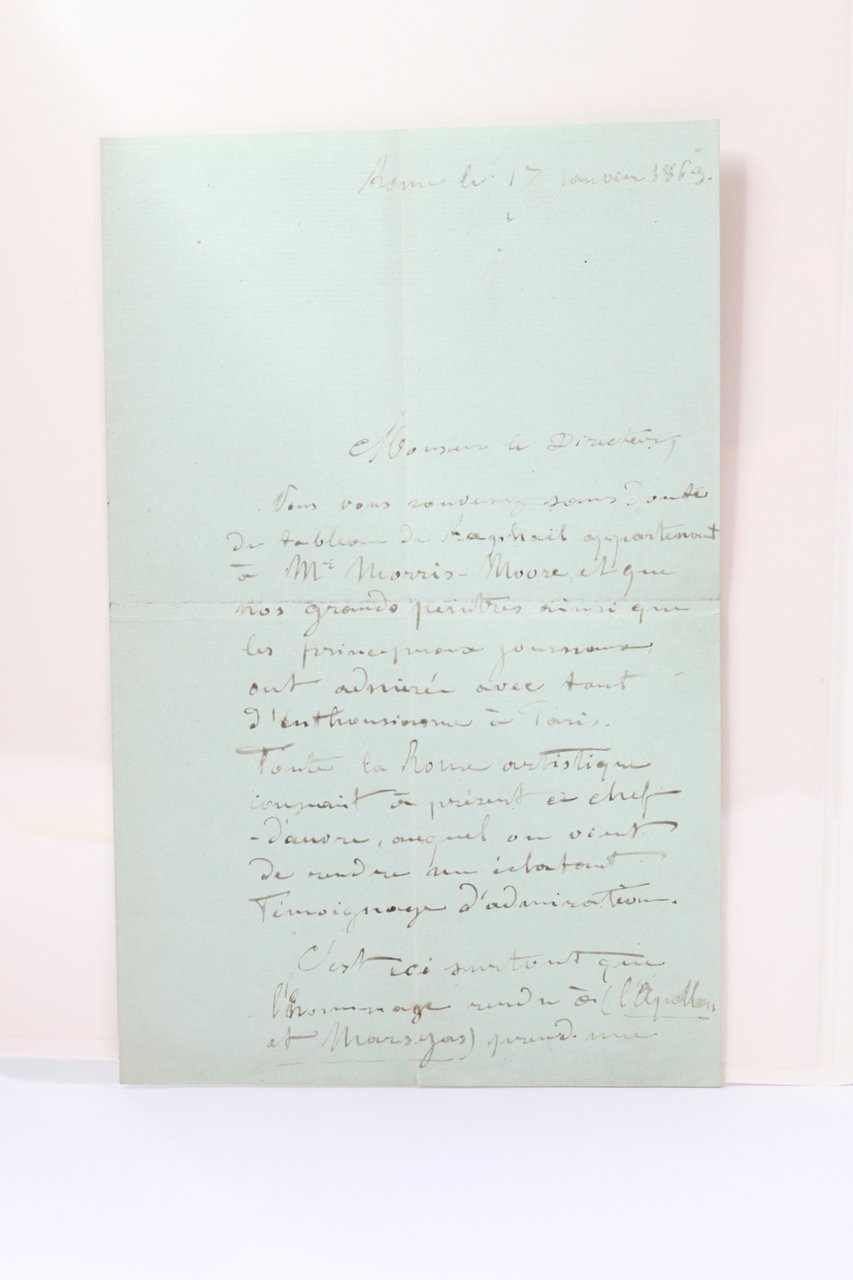 Rome le 17 janvier 1863.
Monsieur le Directeur,
Vous vous souvenez sans doute
du tableau de Raphaël appartenant
à Mr Morris-Moore, et que
nos grands peintres ainsi que
les principaux journaux,
ont admiré avec tant
d'enthousiasme à Paris.
Toute la Rome artistique
connait à présent ce chef
-d'œuvre, auquel on vient
de rendre un éclatant
témoignage d'admiration.
C'est ici surtout que
l'hommage rendu à (l'Apollon
et Marsyas) prend une